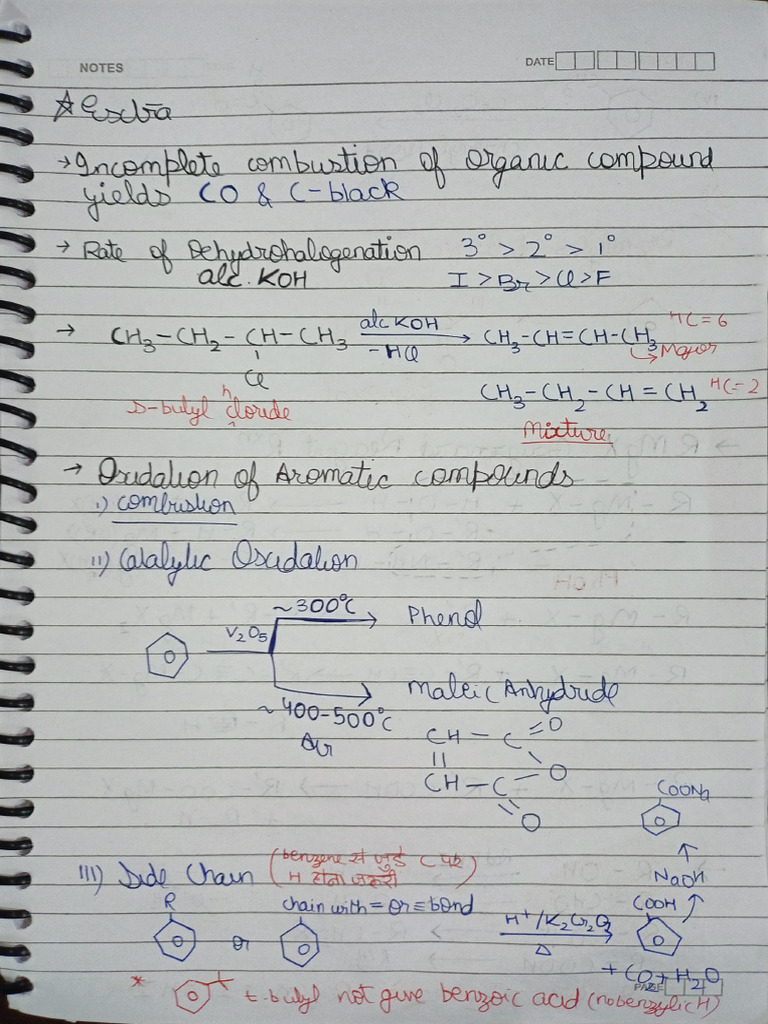 NOTES
DATE
☆ Extra
→ Incomplete combustion of organic compound
yields CO & C-black
→ Rate of Dehydrohalogenation 3° > 2° > 1°
alc. KOH I > Br > Cl > F
→ CH₃-CH₂-CH-CH₃ alc KOH → CH₃-CH=CH-CH₃ HC=6
-HCl Major
Cl
CH₃-CH₂-CH=CH₂ HC=2
s-butyl cloride
h
Mixture
→ Oxidation of Aromatic compounds
i) combustion
ii) Catalytic Oxidation
~300°C
V₂O₅ Phenol
Maleic Anhydride
~400-500°C
Air
CH-C=O
||
O
CH-C
O
COONa
↑
NaOH
iii) Side Chain (benzene से जुड़े C पर
H होना जरूरी)
R chain with = or ≡ bond
COOH
or H⁺/K₂Cr₂O₇
Δ
+ CO₂ + H₂O
PAGE
* t-butyl not give benzoic acid (no benzylic H)